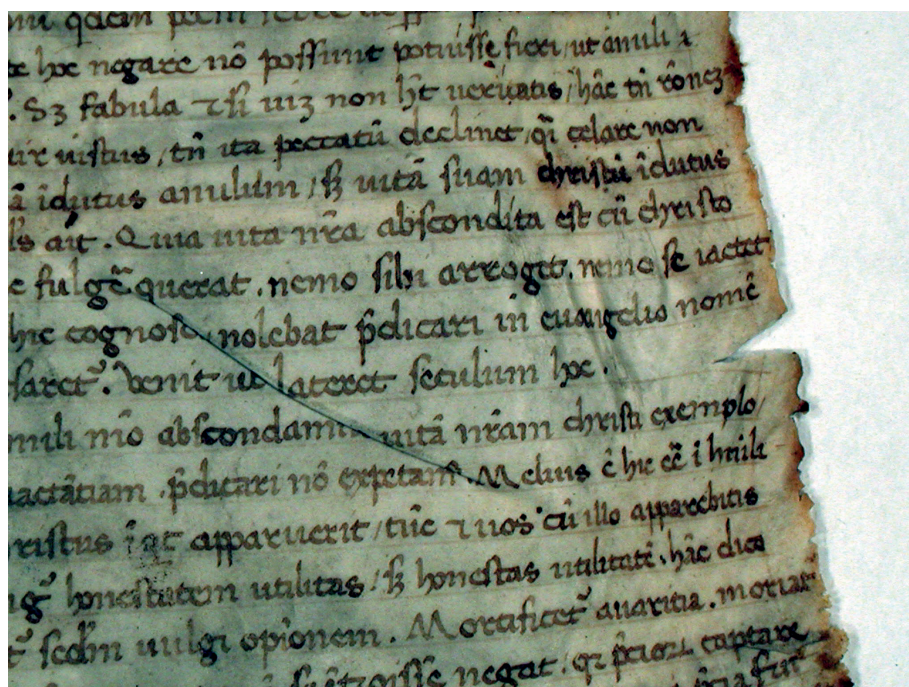 quidem
hoc negare nō possunt potuisse fieri, ut anuli
. Sꝫ fabula ⁊si uiꝫ non ħt ueritatis / hāc tn̄ rōneꝫ
uir uistus, tn̄ ita peccatū declinet, q̄ celare non
ā īdutus anulum / sꝫ uitā suam christū īdutus
ait. Quia uita nr̄a abscondita est cū christo
fulgē querat. nemo sibi arroget. nemo se iactet
hic cognosci nolebat p̄dicari in euangelio nomē
saret᷑. Venit ut lateret seculum hoc.
mili mō abscondamus uitā nr̄am christi exemplo /
iactātiam. p̄dicari nō expetam᷑. Melius ē hic eē ī humili
ristus apparuerit / tūc ⁊ uos cū illo apparebitis
honestatem utilitas / sꝫ honestas utilitatē. hāc dico
sedm uulgi opīonem. Mortificet᷑ auaritia. moriat᷑
negat. captare